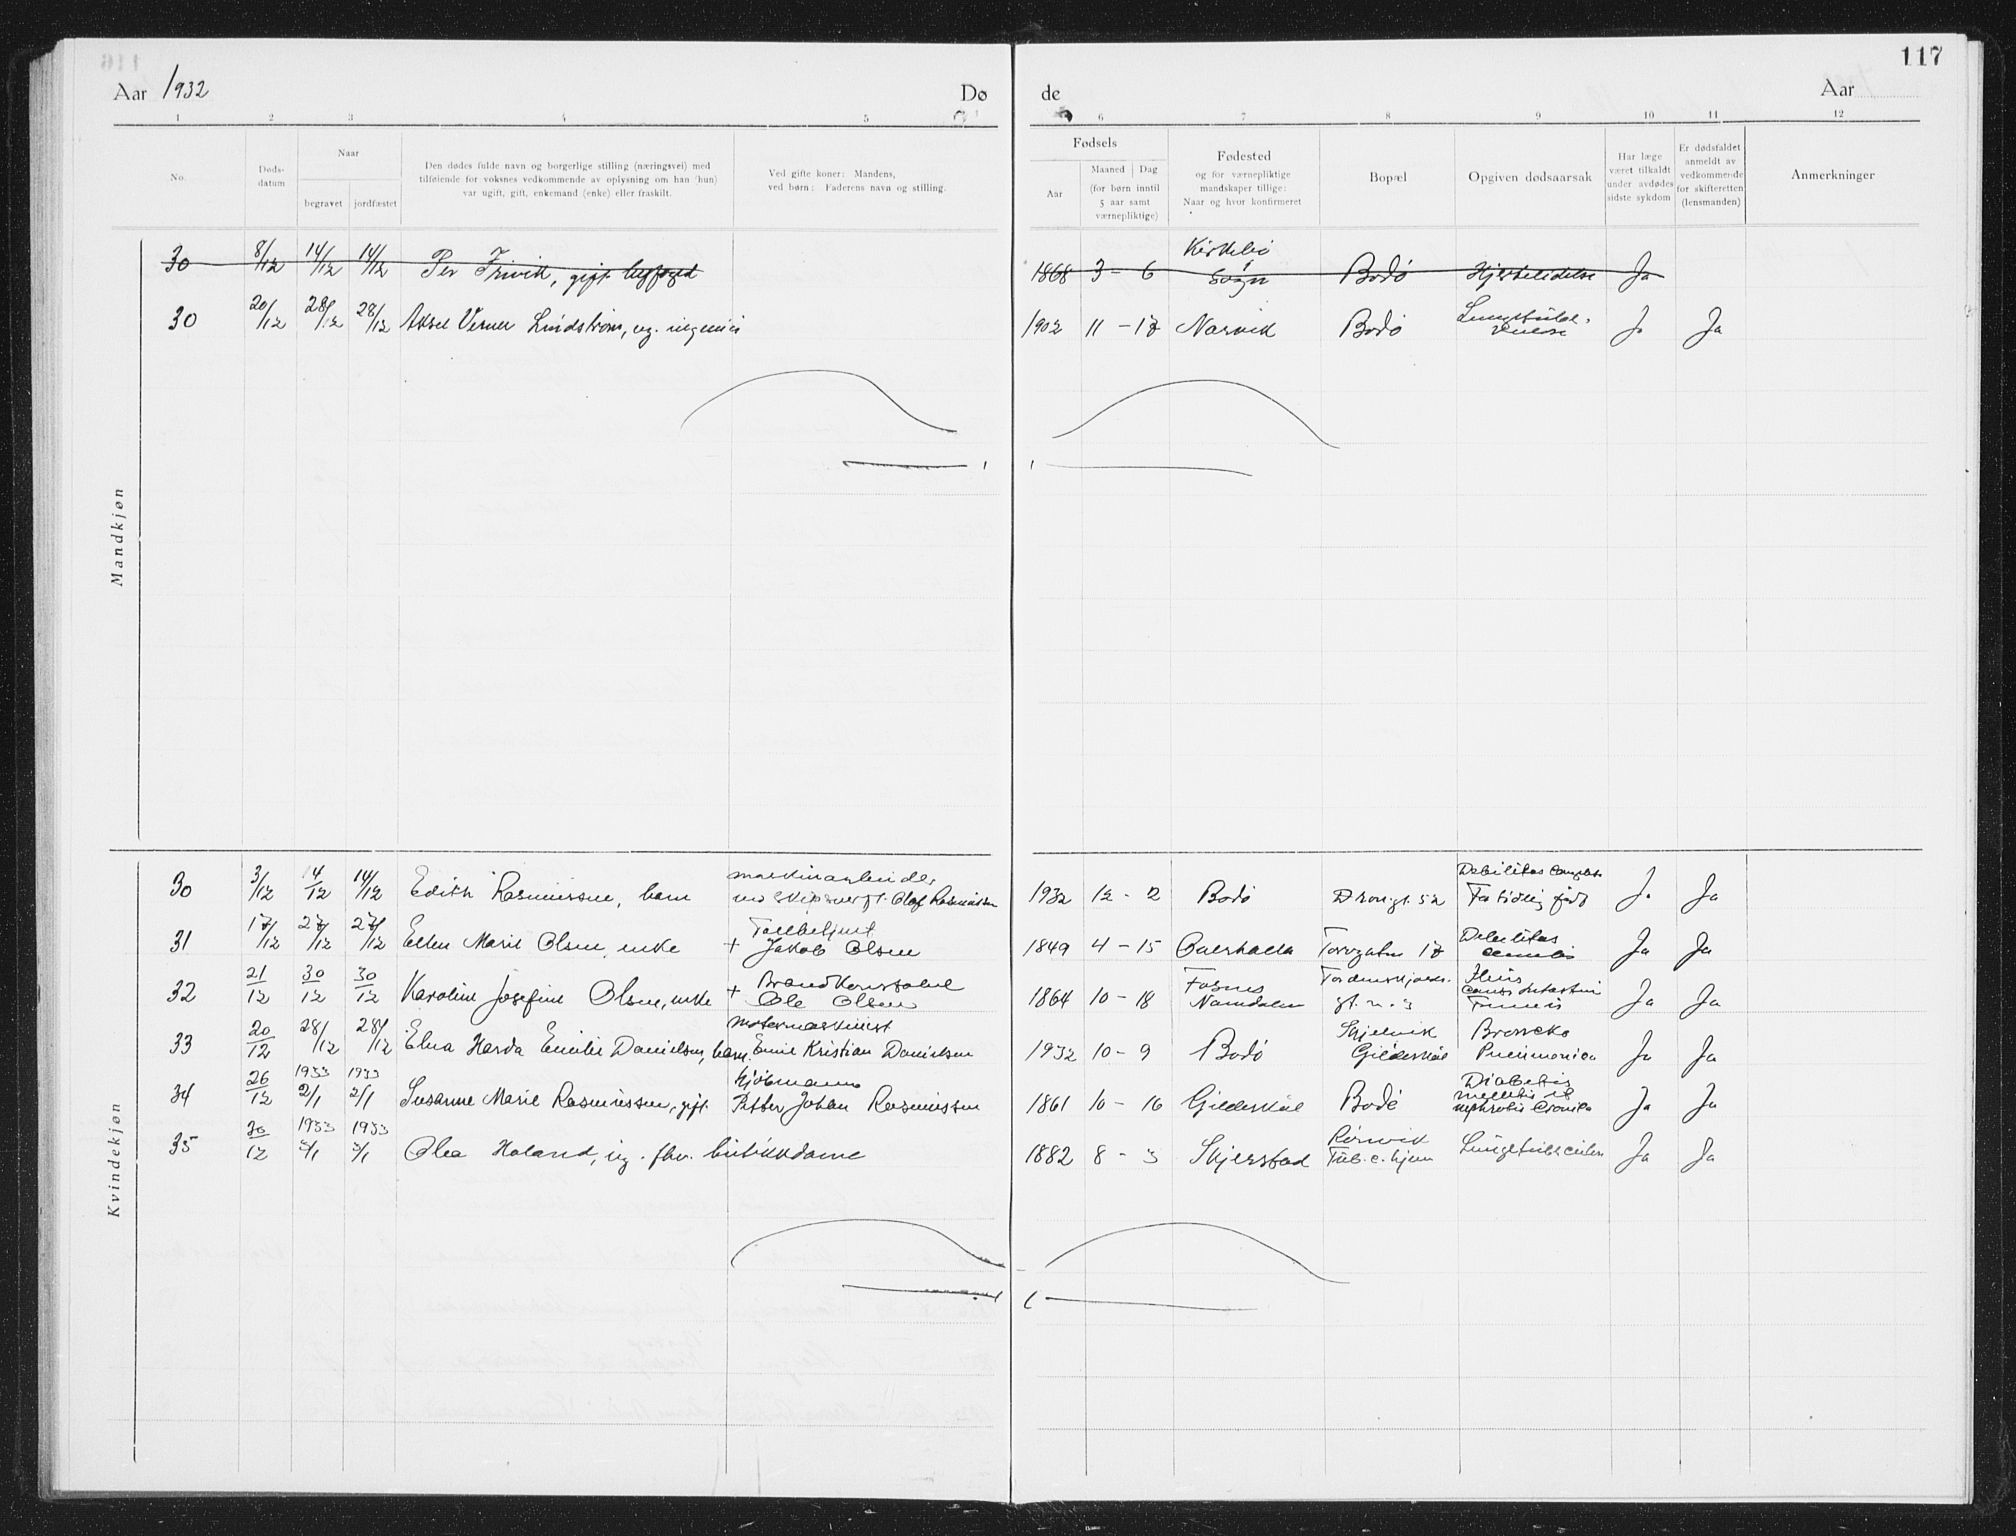 Aar 1932
Dø
de
Aar
117
1 2 3 4 5 6 7 8 9 10 11 12
No.
Døds-
datum
Naar
begravet jordfæstet
Den dødes fulde navn og borgerlige stilling (næringsvei) med
tilføiende for voksnes vedkommende av oplysning om han (hun)
var ugift, gift, enkemand (enke) eller fraskilt.
Ved gifte koner: Mandens,
ved børn: Faderens navn og stilling.
Fødsels
Aar
Maaned Dag
(for børn inntil
5 aar samt
værnepliktige)
Fødested
og for værnepliktige
mandskaper tillige:
Naar og hvor konfirmeret
Bopæl
Opgiven dødsaarsak
Har læge
været tilkaldt
under avdødes
sidste sykdom
Er dødsfaldet
anmeldt av
vedkommende
for skifteretten
(lensmanden)
Anmerkninger
Mandkjøn
30 8/12 14/12 14/12 Per Frivik, gift byfoged 1868 3 - 6 Sogn Bodø Hjertelidelse Ja
30 20/12 28/12 28/12 Aksel Verner Lindstrøm, ug. ingeniør 1902 11 - 17 Narvik Bodø Ja Ja
Kvindekjøn
30 3/12 14/12 14/12 Edith Rasmussen, barn maskinarbeider
Olaf Rasmussen 1932 12 - 2 Bodø Dron.gt. 52 Debilitas
For tidlig født Ja Ja
31 17/12 27/12 27/12 Ellen Marie Olsen, enke + Tollbetjent
Jakob Olsen 1849 4 - 15 Overhalla Torvgaten 17 Debilitas
senilis Ja Ja
32 21/12 30/12 30/12 Karoline Josefine Olsen, enke + Brandkonstabel
Ole Olsen 1864 10 - 18 Fosnes
Namdalen Tordenskjolds.
gt. n. 3 Ileus
Ja Ja
33 20/12 28/12 28/12 Elna Harda Emilie Danielsen, barn Motormaskinist
Emil Kristian Danielsen 1932 10 - 9 Bodø Skjelvik
Gildeskål Broncko
Pneumonia Ja Ja
34 26/12 1933 2/1 1933 2/1 Susanne Marie Rasmussen, gift Kjøbmann
Petter Johan Rasmussen 1861 10 - 16 Gildeskål Bodø Diabetis
mellitis et
nephrotis Cronica Ja Ja
35 1933 1933 Olea Haland, ug. fhv. butikkdame 1882 8 - 3 Skjerstad Rønvik
Tub.c.hjem Ja Ja